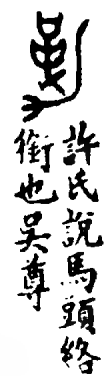 勒
許氏說馬頭絡
銜也吳尊